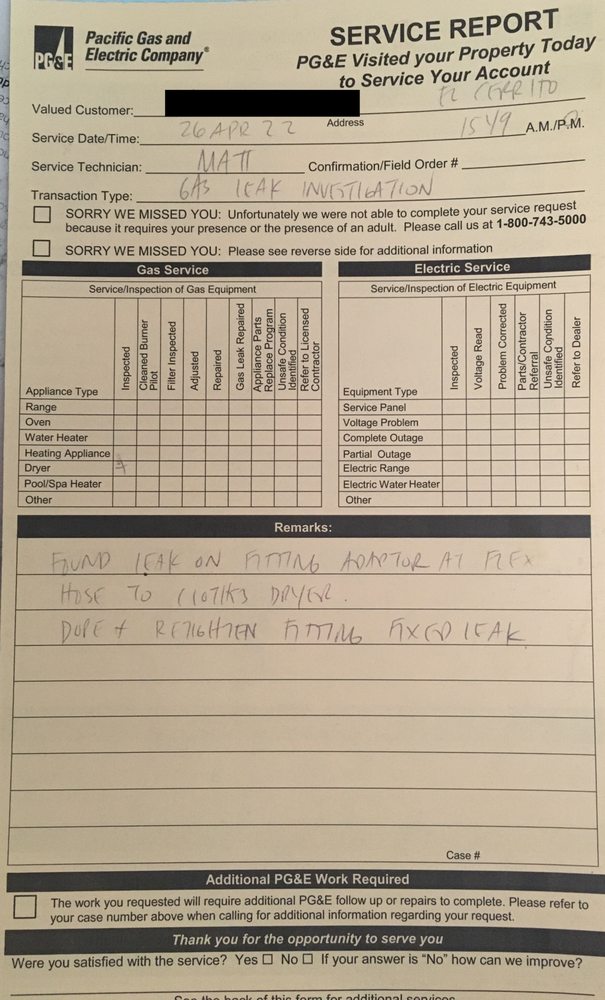 PG&E
Pacific Gas and
Electric Company®
SERVICE REPORT
PG&E Visited your Property Today
to Service Your Account
Valued Customer:
Address
EL CERRITO
Service Date/Time: 26 APR 22 1549 A.M./P.M.
Service Technician: MATT Confirmation/Field Order #
Transaction Type: GAS LEAK INVESTIGATION
SORRY WE MISSED YOU: Unfortunately we were not able to complete your service request
because it requires your presence or the presence of an adult. Please call us at 1-800-743-5000
SORRY WE MISSED YOU: Please see reverse side for additional information
Gas Service
Service/Inspection of Gas Equipment
Appliance Type
Inspected
Cleaned Burner
Pilot
Filter Inspected
Adjusted
Repaired
Gas Leak Repaired
Appliance Parts
Replace Program
Unsafe Condition
Identified
Refer to Licensed
Contractor
Range
Oven
Water Heater
Heating Appliance
Dryer
Pool/Spa Heater
Other
Electric Service
Service/Inspection of Electric Equipment
Equipment Type
Inspected
Voltage Read
Problem Corrected
Parts/Contractor
Referral
Unsafe Condition
Identified
Refer to Dealer
Service Panel
Voltage Problem
Complete Outage
Partial Outage
Electric Range
Electric Water Heater
Other
Remarks:
FOUND LEAK ON FITTING ADAPTOR AT FLEX
HOSE TO CLOTHES DRYER.
DOPE + RETIGHTEN FITTING FIXED LEAK
Case #
Additional PG&E Work Required
The work you requested will require additional PG&E follow up or repairs to complete. Please refer to
your case number above when calling for additional information regarding your request.
Thank you for the opportunity to serve you
Were you satisfied with the service? Yes No If your answer is “No” how can we improve?
See the back of this form for additional services